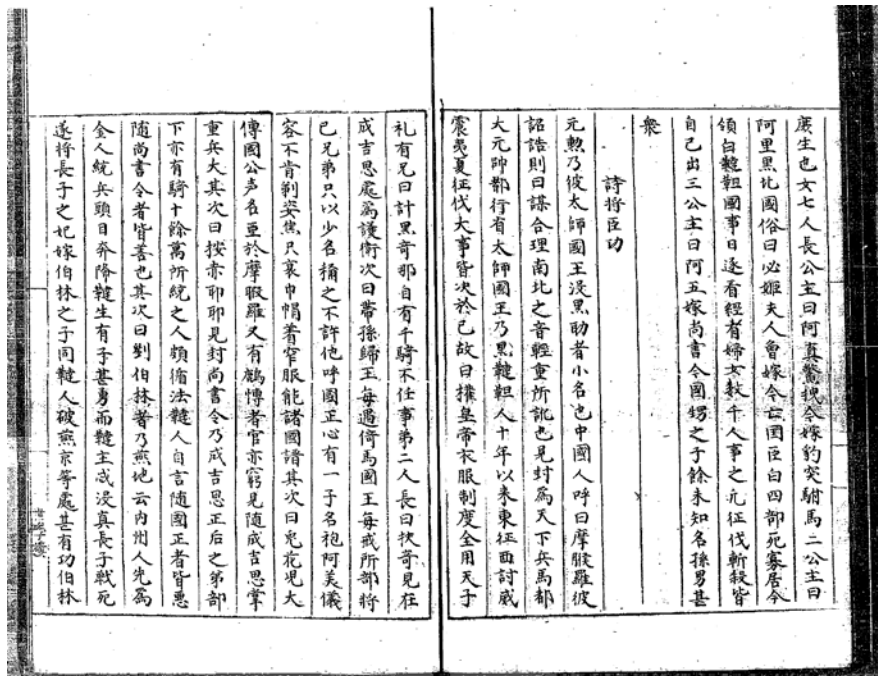 庶生也女七人長公主曰阿真鱉拽今嫁豹突駙馬二公主曰
阿里黑比國俗曰必姬夫人曾嫁今亡国臣白四部死寡居今
領白韃靼國事日逐看經有婦女数千人事之凢征伐斬殺皆
自己出三公主曰阿五嫁尚書令國舅之子餘未知名孫男甚
衆
諸将臣功
元勲乃彼太師國王没黑助者小名也中國人呼曰摩睺羅彼
詔誥則曰謀合理南北之音輕重所訛也見封為天下兵馬都
大元帥都行省太師國王乃黑韃靼人十年以来東征西討威
震夷夏征伐大事皆决於己故曰權皇帝衣服制度全用天子
礼有兄曰計黑奇那自有千騎不任事弟二人長曰抹奇見在
成吉思處為護衛次曰帶孫歸王每遇倚馬國王每戒所部将
已兄弟只以少名稱之不許他呼國王心有一子名袍阿美儀
容不肯剃婆焦只裹巾帽着窄服能諸國語其次曰兎花児大
傳國公声名亜於摩睺羅又有鷓博者官亦窮見随成吉思掌
重兵大其次曰按赤耶耶見封尚書令乃成吉思正后之弟部
下亦有騎十餘萬所統之人頗循法韃人自言随國王者皆悪
随尚書令者皆善也其次曰劉伯林者乃燕地云内州人先為
金人統兵頭目奔降韃生有子甚勇而韃主忒没真長子戰死
遂将長子之妃嫁伯林之子同韃人破燕京等處甚有功伯林